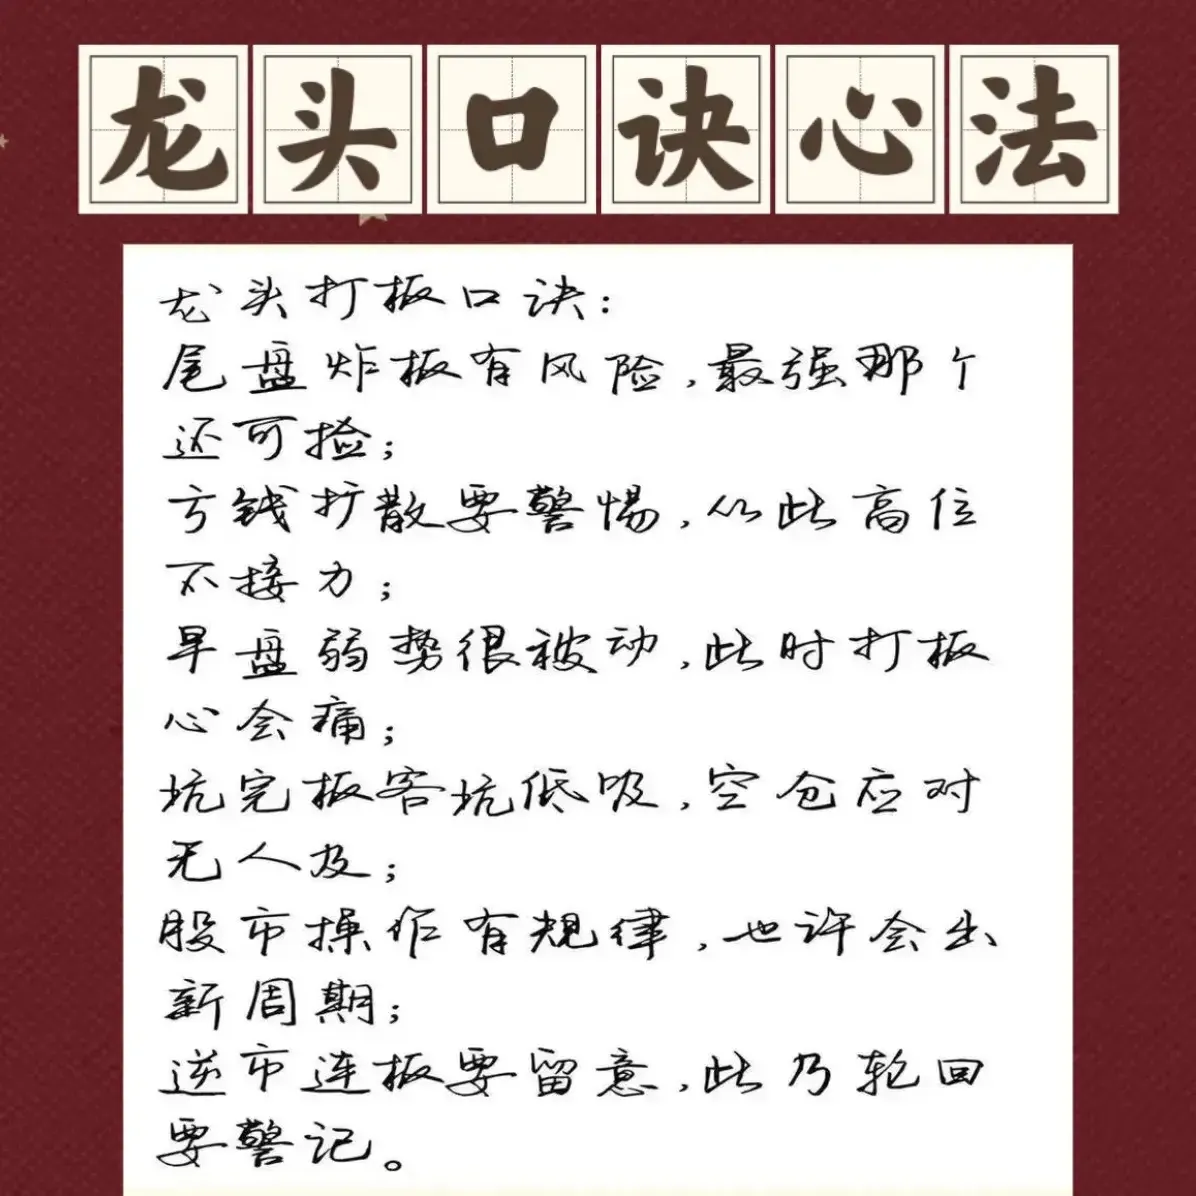 龙头口诀心法
龙头打板口诀：
尾盘炸板有风险，最强那个
还可捡；
亏钱扩散要警惕，从此高位
不接力；
早盘弱势很被动，此时打板
心会痛；
坑完板客坑低吸，空仓应对
无人及；
股市操作有规律，也许会出
新周期；
逆市连板要留意，此乃轮回
要警记。